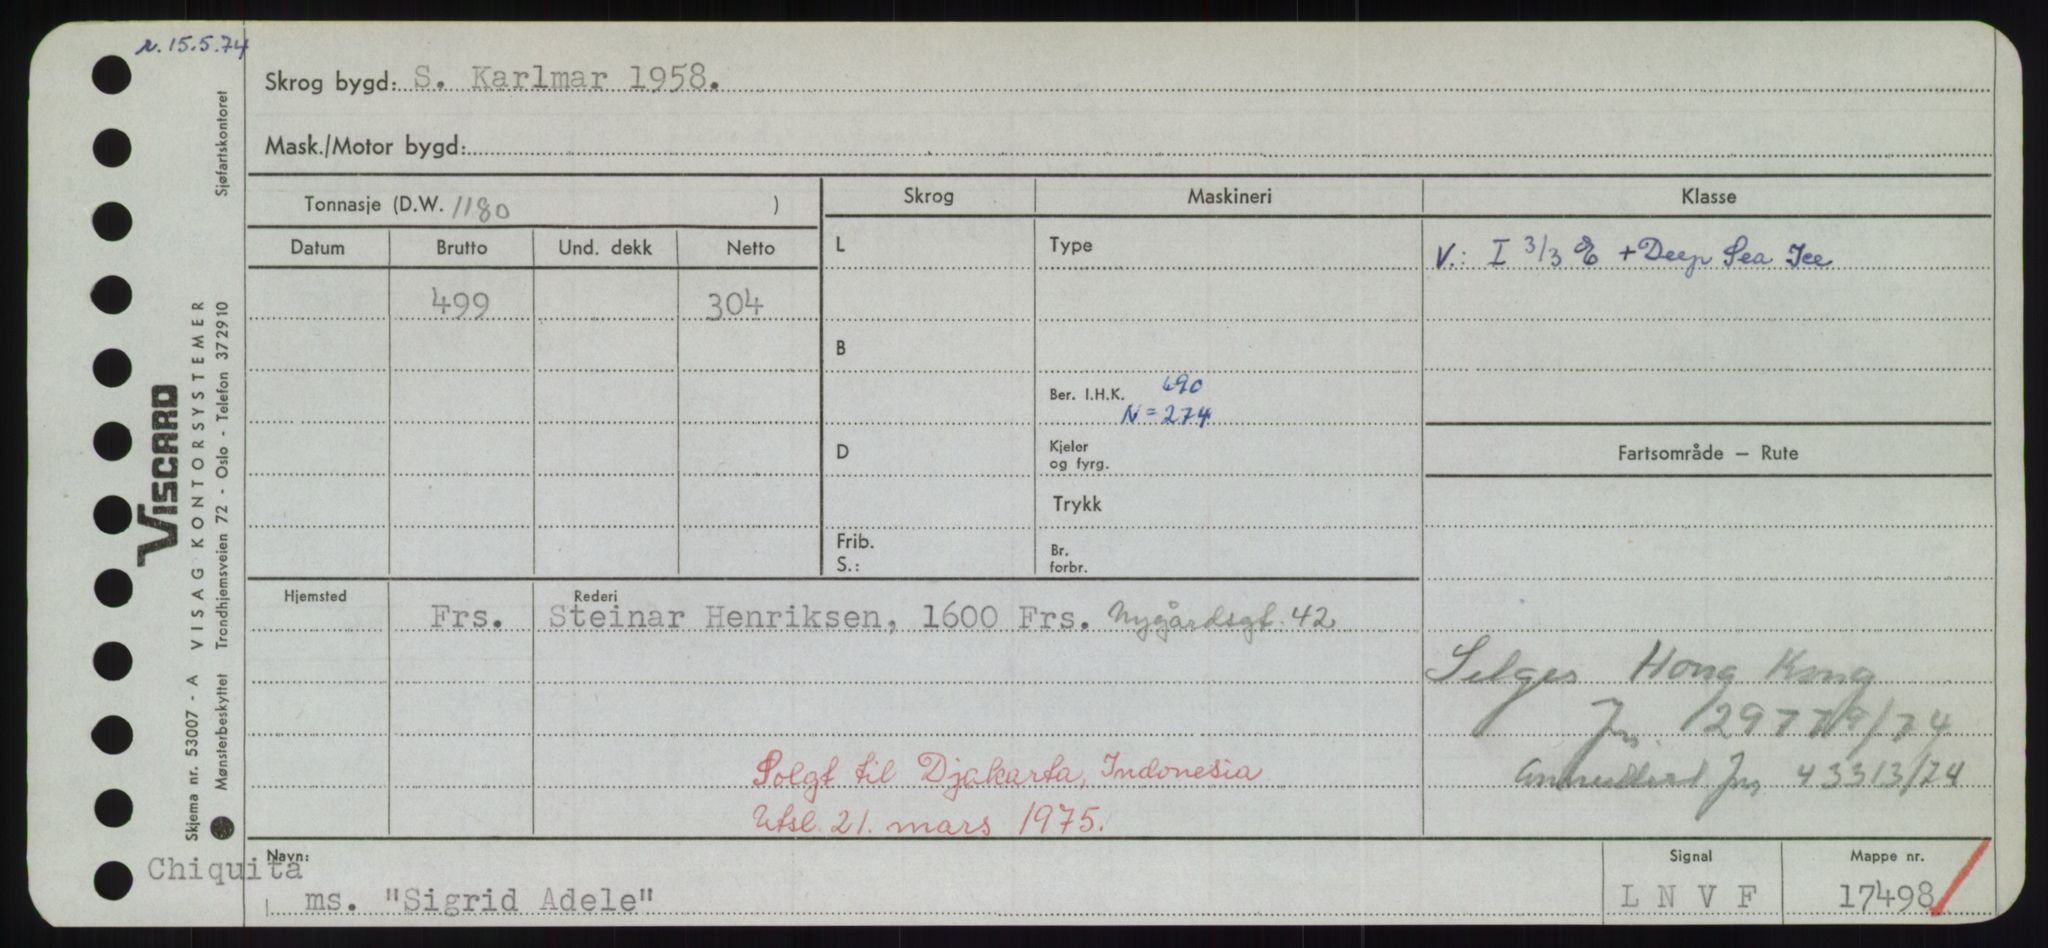 r. 15.5.74
Skrog bygd: S. Karlmar 1958.
Mask./Motor bygd:
Tonnasje (D.W. 1180 )
Datum Brutto Und. dekk Netto
499 304
Skrog Maskineri Klasse
L Type V.: I 3/3 E + Deep Sea Ice
B
Ber. I.H.K. 690
N = 274
D Kjeler
og fyrg.
Fartsområde — Rute
Trykk
Frib.
S.:
Br.
forbr.
Hjemsted Rederi
Frs. Steinar Henriksen, 1600 Frs. Nygårdsgt. 42
Selges Hong Kong
Jn. 29779/74
Annullert Jn 43313/74
Solgt til Djakarta, Indonesia
Utsl. 21. mars 1975.
Navn:
Chiquita
ms. "Sigrid Adele"
Signal
L N V F
Mappe nr.
17498
Sjøfartskontoret
VISCARD
Skjema nr. 53007 - A VISAG KONTORSYSTEMER
Mønsterbeskyttet Trondhjemsveien 72 - Oslo - Telefon 372910